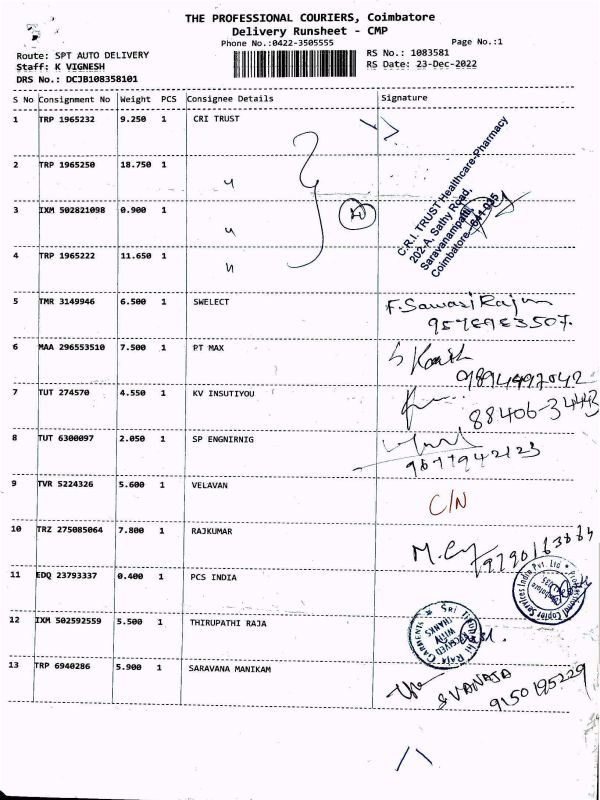 THE PROFESSIONAL COURIERS, Coimbatore
Delivery Runsheet - CMP
Phone No.:0422-3505555
Page No.:1
Route: SPT AUTO DELIVERY
RS No.: 1083581
Staff: K VIGNESH
RS Date: 23-Dec-2022
DRS No.: DCJB108358101
S No Consignment No Weight PCS Consignee Details Signature
1 TRP 1965232 9.250 1 CRI TRUST
C.R.I. TRUST Healthcare-Pharmacy
202-A, Sathy Road,
Saravanampatti,
Coimbatore - 641 035
2 TRP 1965250 18.750 1 "
3 IXM 502821098 0.900 1 "
4 TRP 1965222 11.650 1 "
5 TMR 3149946 6.500 1 SWELECT
6 MAA 296553510 7.500 1 PT MAX
7 TUT 274570 4.550 1 KV INSUTIYOU
88406-34443
8 TUT 6300097 2.050 1 SP ENGNIRNIG
9677942123
9 TVR 5224326 5.600 1 VELAVAN C/N
10 TRZ 275085064 7.800 1 RAJKUMAR
11 EDQ 23793337 0.400 1 PCS INDIA
Professional Copier Services India Pvt. Ltd
12 IXM 502592559 5.500 1 THIRUPATHI RAJA
SRI THIRUPATHI RAJA GARMENTS
RECEIVED
WITH
THANKS
13 TRP 6940286 5.900 1 SARAVANA MANIKAM
S VANAJA
9150195229